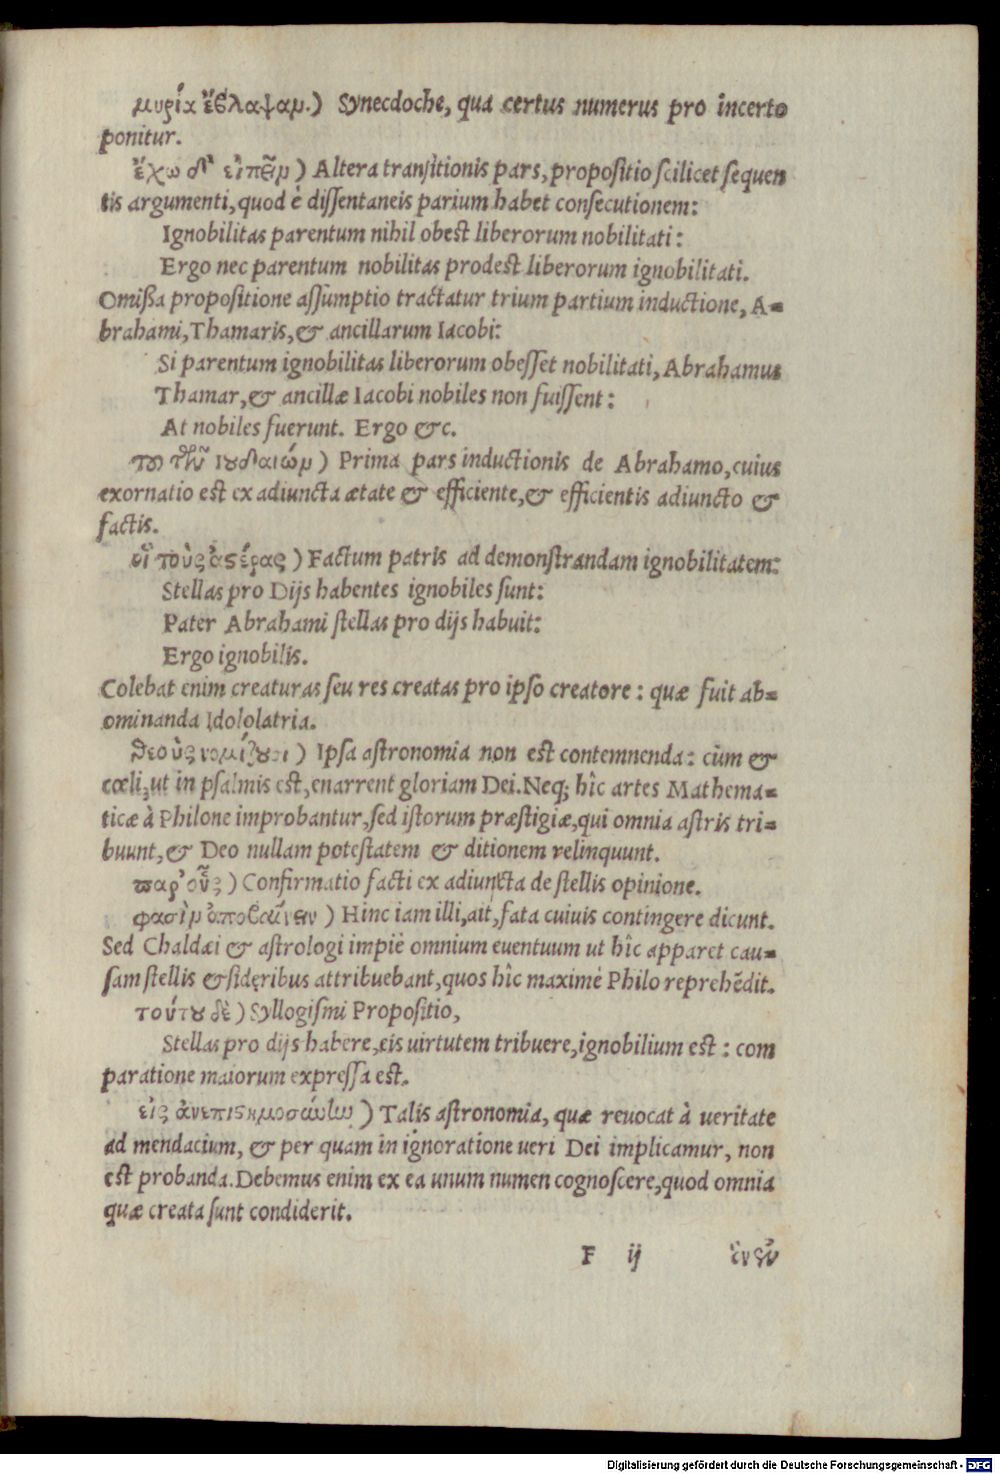 μυρία ἔβλαψαν.) Synecdoche, qua certus numerus pro incerto
ponitur.
ἔχω δ' εἰπεῖν) Altera transitionis pars, propositio scilicet sequen
tis argumenti, quod è dissentaneis parium habet consecutionem:
Ignobilitas parentum nihil obest liberorum nobilitati:
Ergo nec parentum nobilitas prodest liberorum ignobilitati.
Omißa propositione assumptio tractatur trium partium inductione, A=
brahami, Thamaris, & ancillarum Iacobi:
Si parentum ignobilitas liberorum obesset nobilitati, Abrahamus
Thamar, & ancillæ Iacobi nobiles non fuissent:
At nobiles fuerunt. Ergo &c.
τοῦ τῶν ἰουδαίων) Prima pars inductionis de Abrahamo, cuius
exornatio est ex adiuncta ætate & efficiente, & efficientis adiuncto &
factis.
οἳ τοὺς ἀστέρας) Factum patris ad demonstrandam ignobilitatem:
Stellas pro Dijs habentes ignobiles sunt:
Pater Abrahami stellas pro dijs habuit:
Ergo ignobilis.
Colebat enim creaturas seu res creatas pro ipso creatore: quæ fuit ab=
ominanda Idololatria.
θεοὺς νομίζουσι) Ipsa astronomia non est contemnenda: cùm &
cœli, ut in psalmis est, enarrent gloriam Dei. Neq; hîc artes Mathema=
ticæ à Philone improbantur, sed istorum præstigiæ, qui omnia astris tri=
buunt, & Deo nullam potestatem & ditionem relinquunt.
παρ' οὓς) Confirmatio facti ex adiuncta de stellis opinione.
φασὶν ἀποβαίνειν) Hinc iam illi, ait, fata cuiuis contingere dicunt.
Sed Chaldæi & astrologi impiè omnium euentuum ut hîc apparet cau=
sam stellis & sideribus attribuebant, quos hîc maximè Philo reprehẽdit.
τούτου δὲ) Syllogismi Propositio,
Stellas pro dijs habere, eis uirtutem tribuere, ignobilium est: com
paratione maiorum expressa est.
εἰς ἀνεπιστημοσύνην) Talis astronomia, quæ reuocat à ueritate
ad mendacium, & per quam in ignoratione ueri Dei implicamur, non
est probanda. Debemus enim ex ea unum numen cognoscere, quod omnia
quæ creata sunt condiderit.
F ij
Digitalisierung gefördert durch die Deutsche Forschungsgemeinschaft - DFG